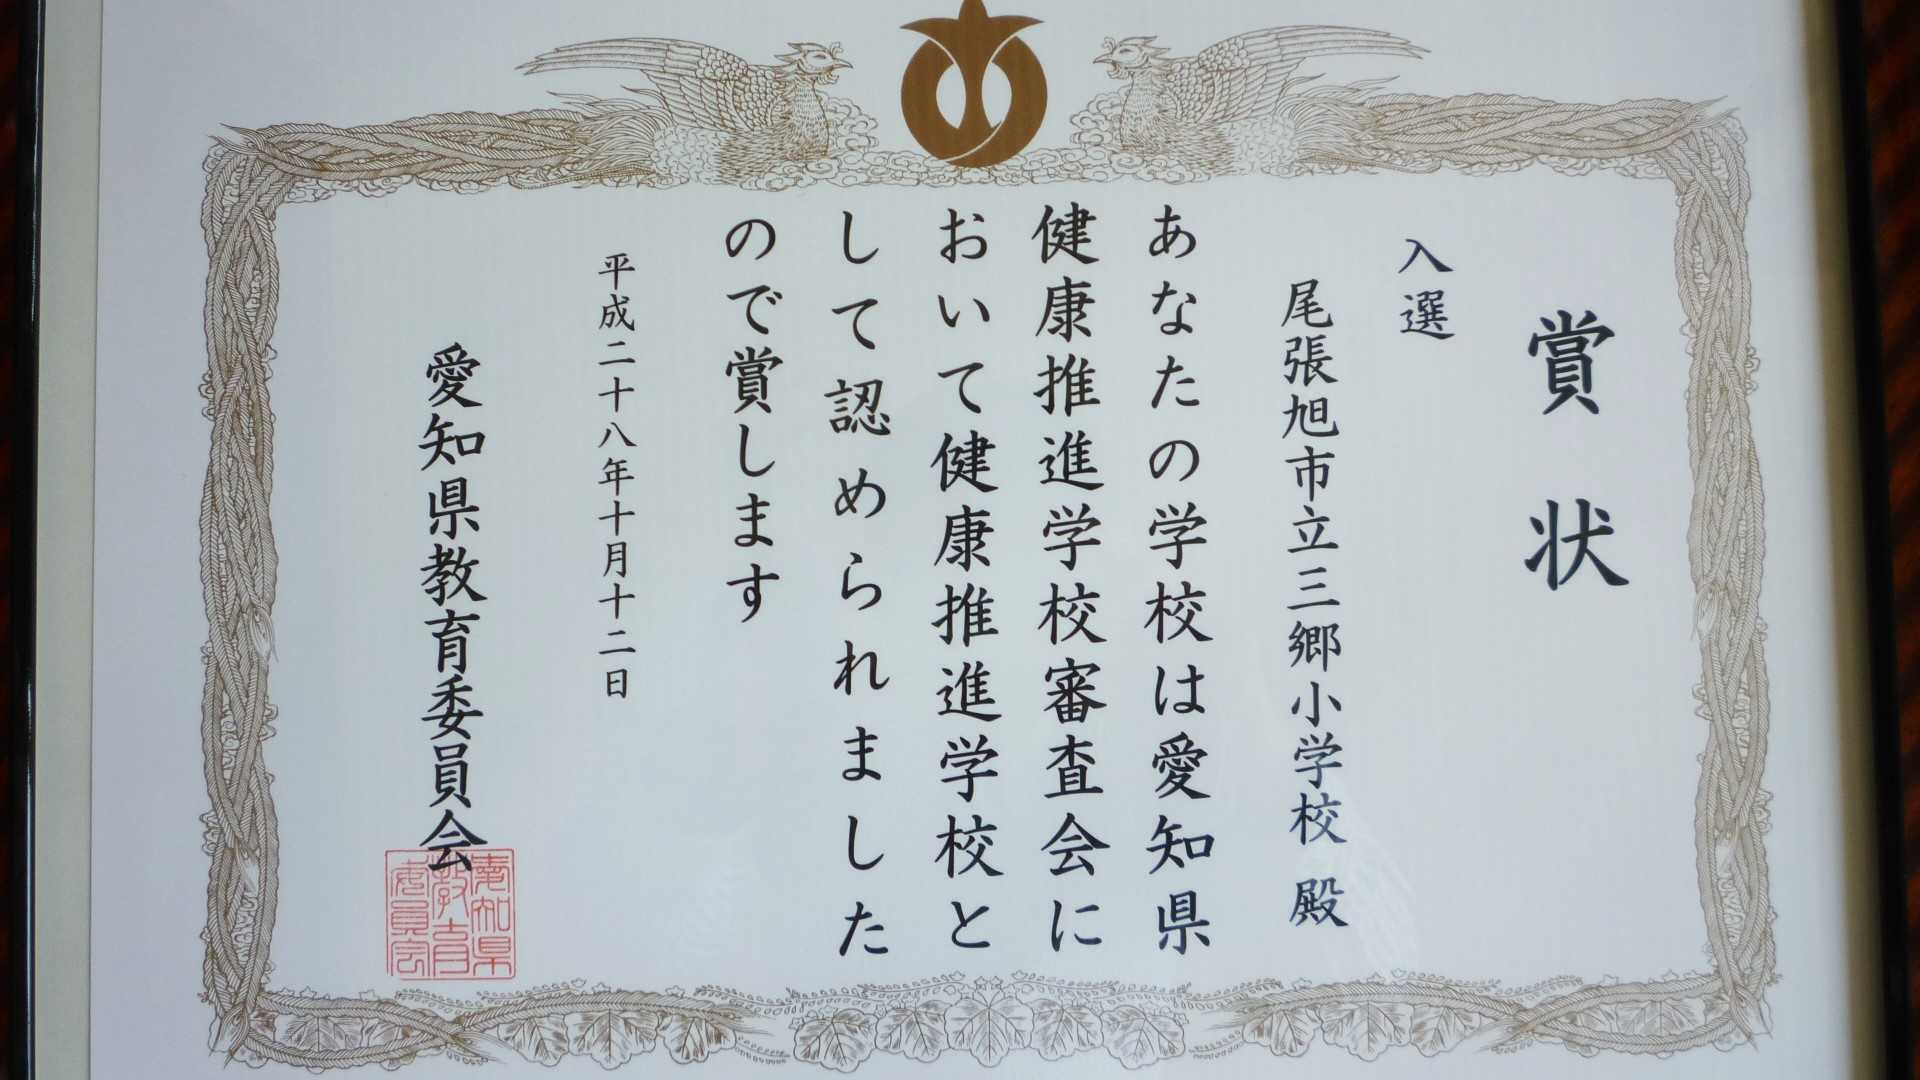 賞状
入選
尾張旭市立三郷小学校 殿
あなたの学校は愛知県
健康推進学校審査会に
おいて健康推進学校と
して認められました
ので賞します
平成二十八年十月十二日
愛知県教育委員会
愛知県
教育
委員会